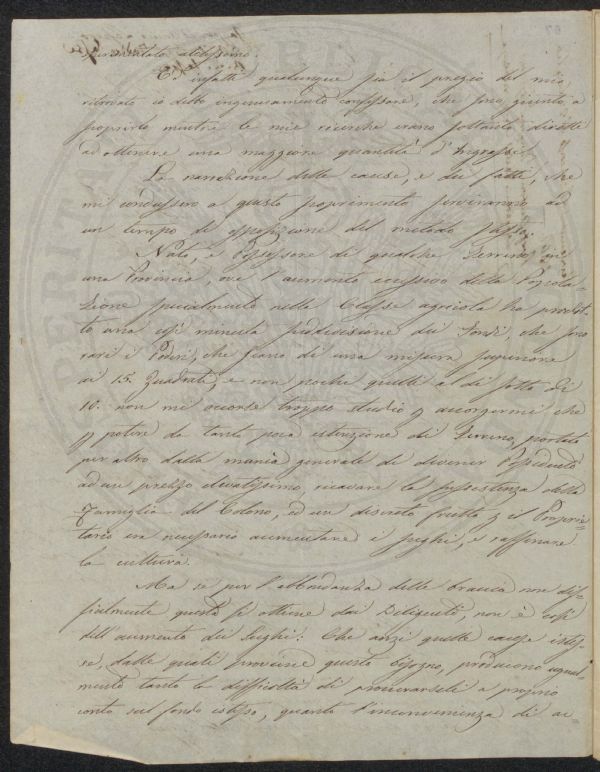 Ed infatti qualunque sia il pregio del mio
ritrovato io debbo ingenuamente confessare, che sono giunto a
scoprirlo mentre le mie ricerche erano soltanto dirette
ad ottenere una maggiore quantità d'Ingrassi.
La narrazione delle cause, e dei fatti, che
mi condussero a questo scoprimento serviranno ad
un tempo di esposizione del metodo stesso.
Nato, e Possessore di qualche Terreno in
una Provincia, ove l'aumento eccessivo della Popola-
zione specialmente nella Classe agricola ha prodot-
to una così minuta suddivisione dei Fondi, che sono
rari i Poderi, che siano di una misura superiore
ai 15. Quadrati, e non poche quelli al di sotto di
10. non mi occorse troppo studio p accorgermi che
p potere da tanta poca estenzione di Terreno, portato
per altro dalla mania generale di divenir Possidenti
ad un prezzo elevatissimo, ricavare la sussistenza della
Famiglia del Colono, ed un discreto frutto p il Proprie=
tario era necessario aumentare i sughi, e raffinare
la cultura.
Ma se per l'abbondanza delle braccia non dif=
ficilmente questo si ottiene dai, non è così
dell'aumento dei Sughi: Che anzi quelle cause istes=
se, dalle quali proviene questo bisogno, producono ugual=
mente tanto la difficoltà di procurarseli a proprio
conto sul fondo istesso, quanto l'inconvenienza di ac=